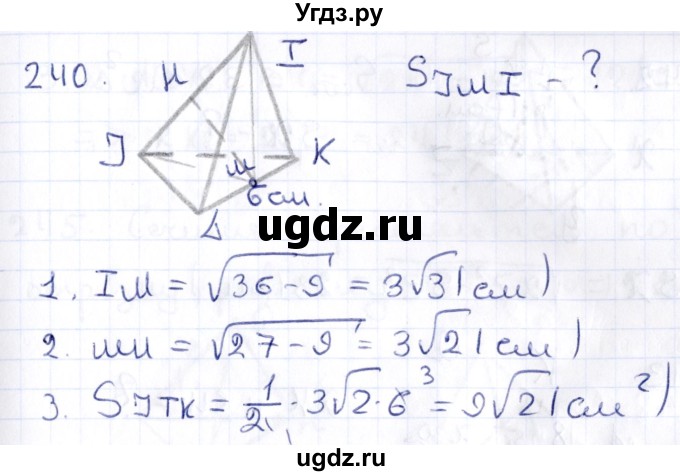 Угдз.ру
240.
И
I
S_JMI - ?
J
M
K
6 см.
L
ugdz.ru
1. IM = √(36-9) = 3√3 (см)
2. MN = √(27-9) = 3√2 (см)
3. S_JTK = 1/2 · 3√2 · 6 ³ = 9√2 (см²)
ugdz.ru
ugdz.ru